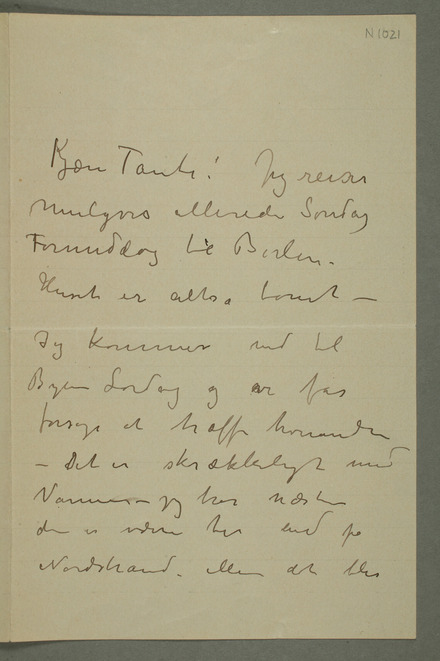 N 1021
Kjære Tante! Jeg reiser
muligvis allerede Søndag
Formiddag til Berlin.
Huset er altsa tomt –
Jeg kommer ind til
Byen Lørdag og vi får
forsøge at træffe hverandre
– Det er skrækkeligt med
Varmen – jeg tror næsten
den er værre her end på
Nordstrand. eller at